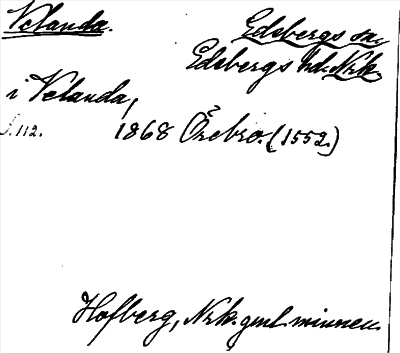 Velanda. Edsbergs sn,
Edsbergs hd. Nrk.
i Velanda,
s. 112. 1868 Örebro. (1552.)
Hofberg, Nrk. gml. minnen.